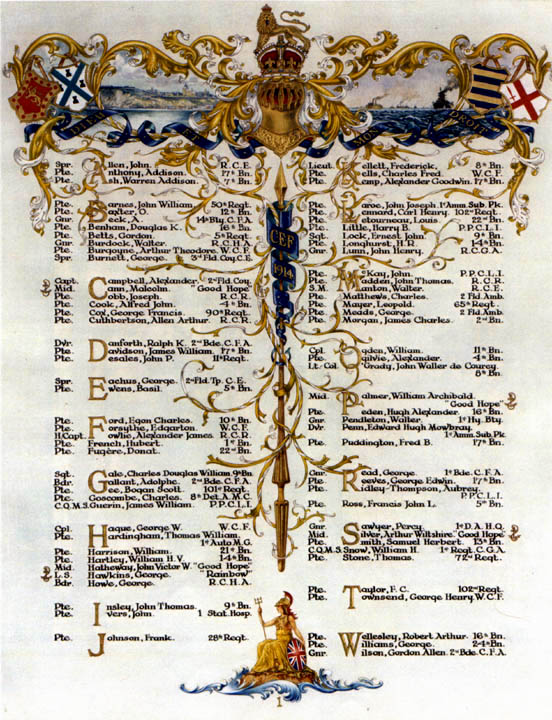 DIEU ET MON DROIT
CEF
1914
Spr. Allen, John. R.C.E.
Pte. Anthony, Addison. 17th Bn.
Pte. Ash, Warren Addison. 7th Bn.
Pte. Barnes, John William 50th Regt.
Pte. Baxter, O. 12th Bn.
Gnr. Beek, A. 14th Bty. C.F.A.
Pte. Benham, Douglas K. 16th Bn.
Pte. Betts, Gordon. 5th Regt.
Gnr. Burdock, Walter. R.C.H.A.
Pte. Burgoyne, Arthur Theodore. W.C.F.
Spr. Burnett, George. 3rd Fld. Coy. C.E.
Capt. Campbell, Alexander. 2nd Fld. Coy.
Mid. Cann, Malcolm "Good Hope"
Pte. Cobb, Joseph. R.C.R.
Pte. Cook, Alfred John. 4th Bn.
Pte. Cox, George Francis. 90th Regt.
Pte. Cuthbertson, Allen Arthur. R.C.R.
Dvr. Danforth, Ralph K. 2nd Bde. C.F.A.
Pte. Davidson, James William. 17th Bn.
Pte. Desales, John P. 11th Regt.
Spr. Eachus, George. 2nd Fld. Tp. C.E.
Pte. Ewens, Basil. 5th Bn.
Pte. Ford, Egon Charles. 10th Bn.
Pte. Forsythe, Edgarton. W.C.F.
H. Capt. Fowlie, Alexander James R.C.R.
Pte. French, Hubert. 1st Bn.
Pte. Fugère, Donat. 22nd Bn.
Sgt. Gale, Charles Douglas William. 9th Bn.
Bdr. Gallant, Adolphe. 2nd Bde. C.F.A.
Pte. Gee, Bogan Scott. 101st Regt.
Pte. Goscombe, Charles. 8th Det. A.M.C.
C.Q.M.S. Guerin, James William. P.P.C.L.I.
Cpl. Hague, George W. W.C.F.
Pte. Hardingham, Thomas William.
1st Auto. M.G.
Pte. Harrison, William. 21st Bn.
Pte. Hartley, William H.V. 14th Bn.
Mid. Hatheway, John Victor W. "Good Hope"
L.S. Hawkins, George. "Rainbow"
Bdr. Howe, George. R.C.H.A.
Pte. Insley, John Thomas. 9th Bn.
Pte. Ivers, John. 1 Stat. Hosp.
Pte. Johnson, Frank. 28th Regt.
Lieut. Kellett, Frederick. 8th Bn.
Pte. Kells, Charles Fred. W.C.F.
Pte. Kemp, Alexander Goodwin. 17th Bn.
Pte. Laroe, John Joseph. 1st Amm. Sub. Pk.
Pte. Lennard, Carl Henry. 102nd Regt.
Pte. Letourneau, Louis 22nd Bn.
Pte. Little, Harry B. P.P.C.L.I.
Sgt. Lock, Ernest John. 9th Bn.
Pte. Longhurst, H.R. 14th Bn.
Gnr. Lunn, John Henry. R.C.G.A.
Pte. McKay, John. P.P.C.L.I.
Pte. Madden, John Thomas. R.C.R.
S.M. Manton, Walter. R.C.E.
Pte. Matthews, Charles. 2 Fld. Amb.
Pte. Mayer, Leopold. 65th Regt.
Pte. Meads, George. 2 Fld. Amb.
Pte. Morgan, James Charles. 2nd Bn.
Cpl. Ogden, William. 11th Bn.
Pte. Ogilvie, Alexander. 4th Bn.
Lt. Col. O'Grady, John Waller de Courcy.
8th Bn.
Mid. Palmer, William Archibald.
"Good Hope"
Pte. Peden, Hugh Alexander. 16th Bn.
Gnr. Pendleton, Walter. 1st Hy. Bty.
Dvr. Penn, Edward Hugh Mowbray.
1st Amm. Sub. Pk.
Pte. Puddington, Fred B. 17th Bn.
Gnr. Read, George. 1st Bde. C.F.A.
Pte. Reeves, George Edwin. 17th Bn.
Pte. Ridley-Thompson, Aubrey.
P.P.C.L.I.
Pte. Ross, Francis John L. 5th Bn.
Gnr. Sawyer, Percy. 1st D.A.H.Q.
Mid. Silver, Arthur Wiltshire. "Good Hope"
Pte. Smith, Samuel Herbert. 15th Bn.
C.Q.M.S. Snow, William H. 1st Regt. C.G.A.
Pte. Stone, Thomas. 72nd Regt.
Pte. Taylor, F.C. 102nd Regt.
Pte. Townsend, George Henry. W.C.F.
Pte. Wellesley, Robert Arthur. 16th Bn.
Pte. Williams, George. 24th Bn.
Gnr. Wilson, Gordon Allen. 2nd Bde. C.F.A.
1